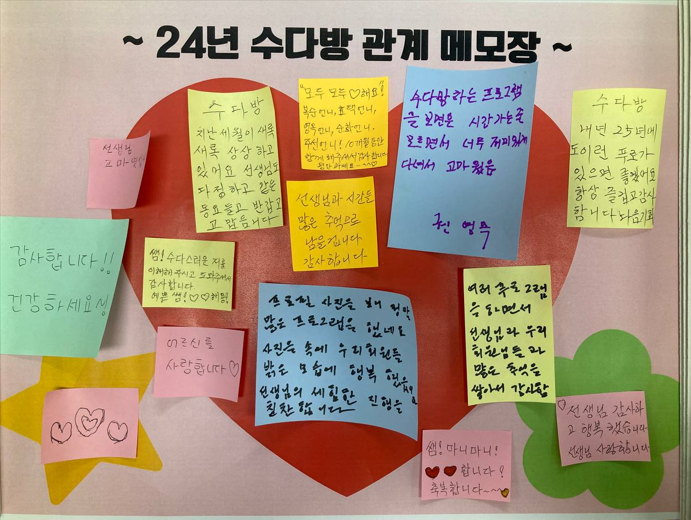 ~ 24년 수다방 관계 메모장 ~
선생님
고마
수다방
지난세월이 새록
새록 상상하고
있어요 선생님도
다정하고 같은
동요들고 반갑고
고맙습니다
"모두 모두 ♡해요!
복순언니, 효택언니,
영옥언니, 순화언니,
언니! 10개월동안
함께 해주셔서 감사합니다
수다방하는 프로그램
을 보면은 시간가는줄
모르면서 너무 재미있게
다녀서 고마웠음
수다방
내년 25년에
도이런 푸로가
있으면 좋겠어요
항상 즐겁고감사
합니다 다음기회
선생님과 시간들
많은 추억으로
남을겁니다
감사합니다
감사합니다!!
건강하세요
쌤! 수다스러운 저를
이해해 주시고 도와주셔서
감사합니다
예쁜 쌤! ♡♡해요!
프로필 사진을 보며 정말
많은 프로그램은 했네요
사진은 속에 우리회원들
밝은 모습에 행복했음
선생님의 세월한 진행을
칭찬합니다
여러 프로그램
을 하면서
선생님과 우리
회원님들과
많은 추억을
쌓아서 감사함
어르신들
사랑합니다♡
♡선생님 감사하
고 행복했습니다
선생님 사랑합니다
쌤! 마니마니!
♥♥합니다!
축복합니다~~